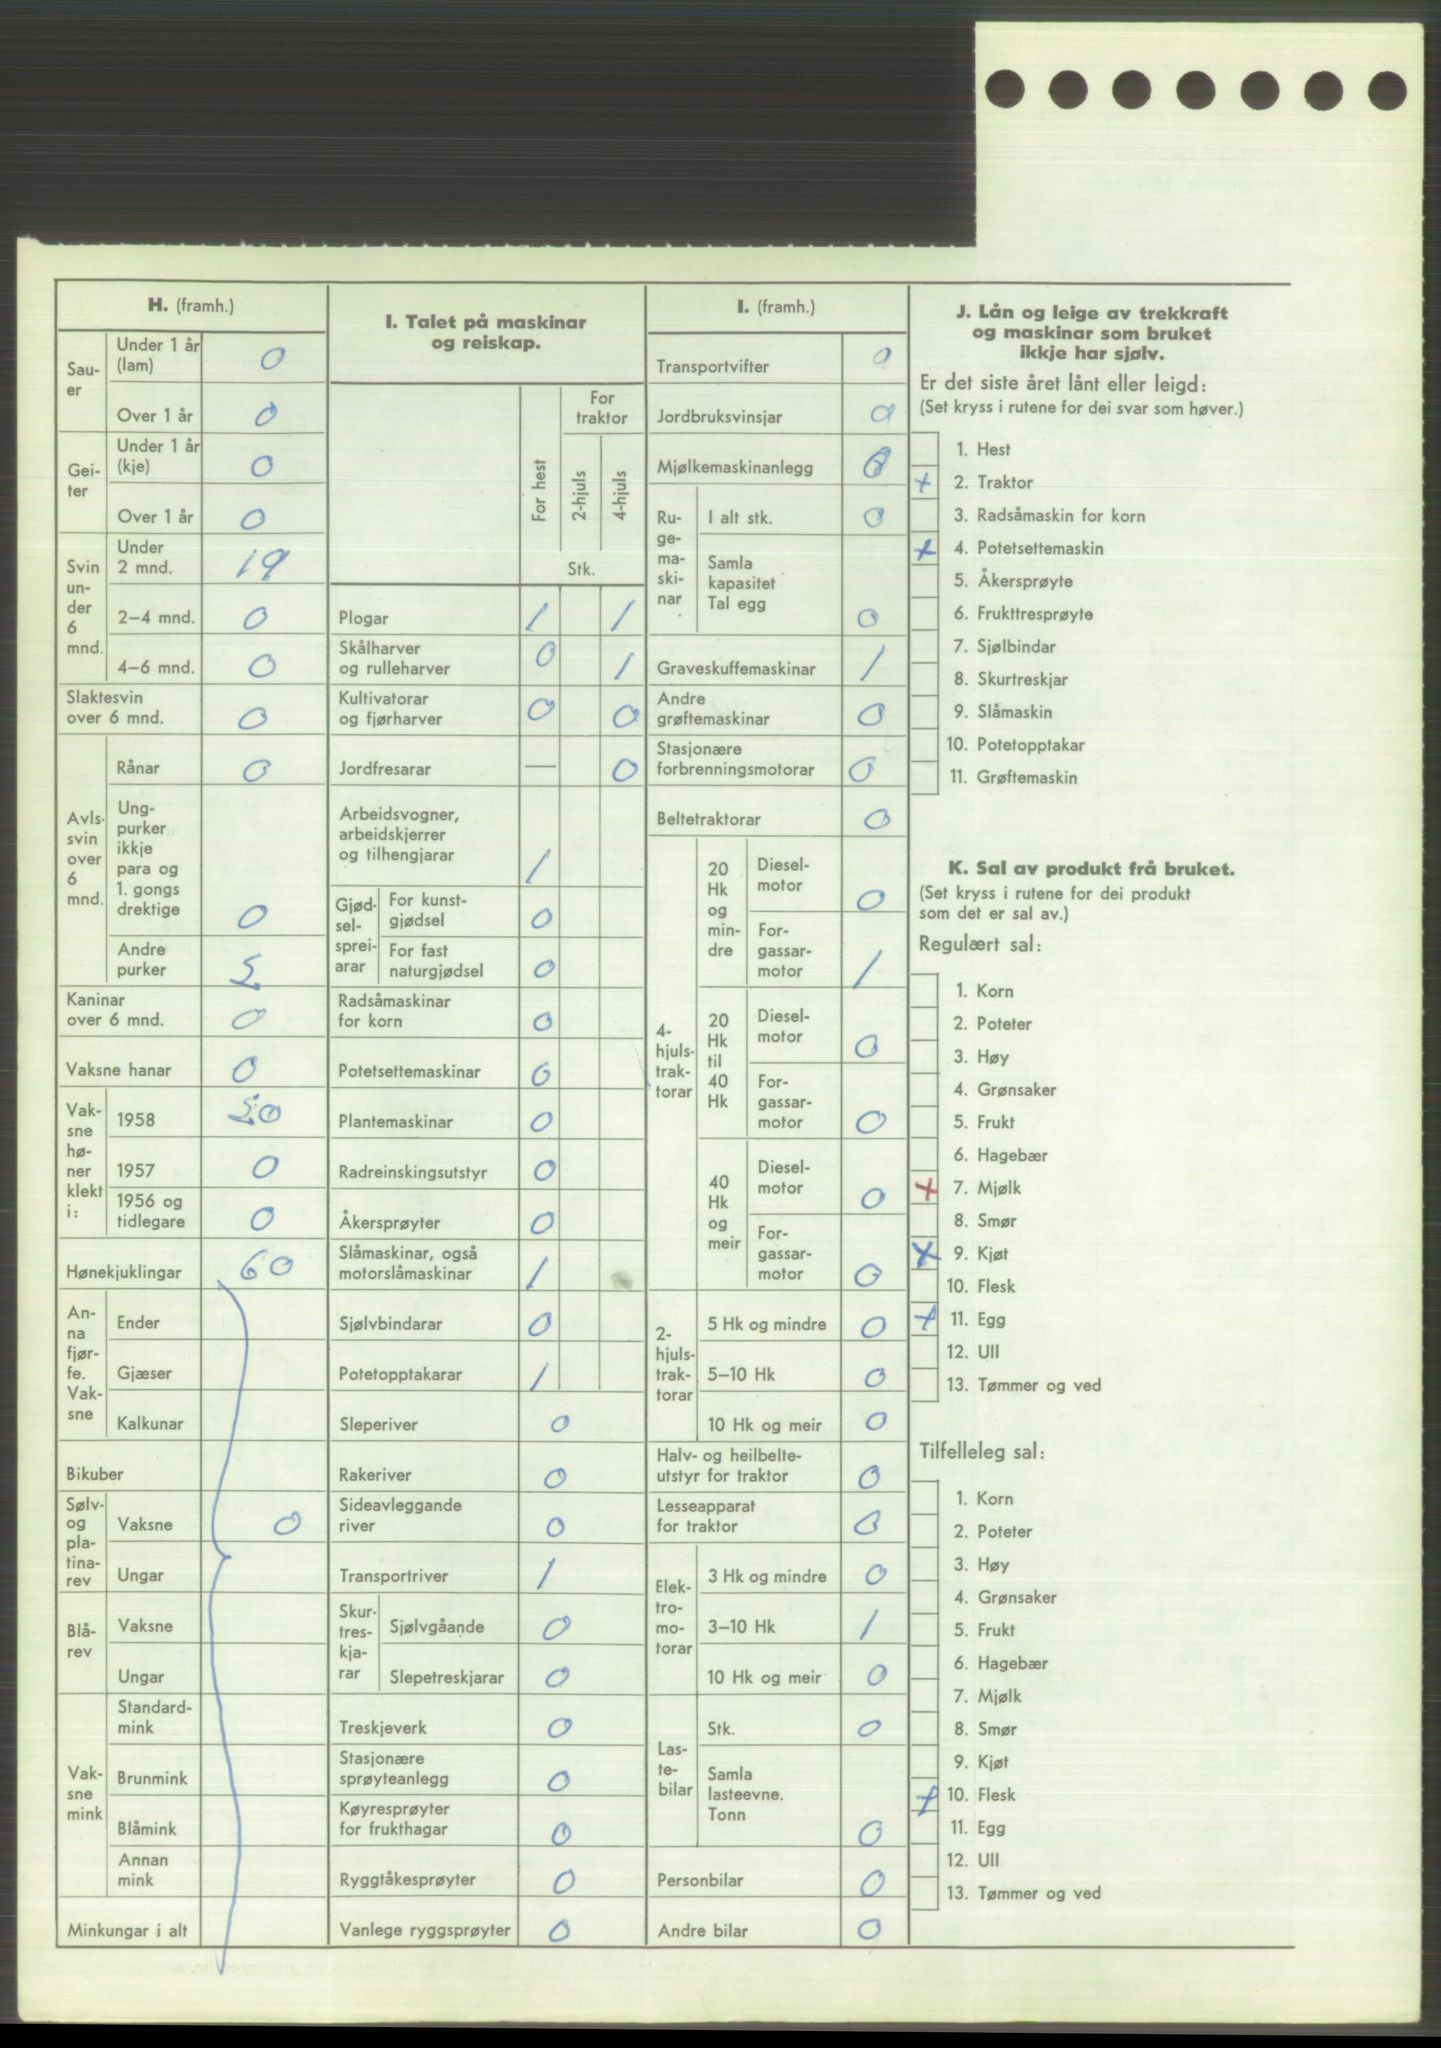 H. (framh.)
Sau-
er
Under 1 år
(lam) 0
Over 1 år 0
Gei-
ter
Under 1 år
(kje) 0
Over 1 år 0
Svin
un-
der
6
mnd.
Under
2 mnd. 19
2–4 mnd. 0
4–6 mnd. 0
Slaktesvin
over 6 mnd. 0
Avls-
svin
over
6
mnd.
Rånar 0
Ung-
purker
ikkje
para og
1. gongs
drektige 0
Andre
purker
Kaninar
over 6 mnd. 0
Vaksne hanar 0
Vak-
sne
hø-
ner
klekt
i:
1958
1957 0
1956 og
tidlegare 0
Hønekjuklingar 60
An-
na
fjør-
fe.
Vak-
sne
Ender
Gjæser
Kalkunar
Bikuber
Sølv-
og
pla-
tina-
rev
Vaksne 0
Ungar
Blå-
rev
Vaksne
Ungar
Vak-
sne
mink
Standard-
mink
Brunmink
Blåmink
Annan
mink
Minkungar i alt
I. Talet på maskinar
og reiskap.
For hest
For
traktor
2-hjuls
4-hjuls
Stk.
Plogar 1 1
Skålharver
og rulleharver 0 1
Kultivatorar
og fjørharver 0 0
Jordfresarar — 0
Arbeidsvogner,
arbeidskjerrer
og tilhengjarar 1
Gjød-
sel-
sprei-
arar
For kunst-
gjødsel 0
For fast
naturgjødsel 0
Radsåmaskinar
for korn 0
Potetsettemaskinar 0
Plantemaskinar 0
Radreinskingsutstyr 0
Åkersprøyter 0
Slåmaskinar, også
motorslåmaskinar 1
Sjølvbindarar 0
Potetopptakarar 1
Sleperiver 0
Rakeriver 0
Sideavleggande
river 0
Transportriver 1
Skur-
tres-
kja-
rar
Sjølvgåande 0
Slepetreskjarar 0
Treskjeverk 0
Stasjonære
sprøyteanlegg 0
Køyresprøyter
for frukthagar 0
Ryggtåkesprøyter 0
Vanlege ryggsprøyter 0
I. (framh.)
Transportvifter 0
Jordbruksvinsjar 0
Mjølkemaskinanlegg
Ru-
ge-
ma-
ski-
nar
I alt stk. 0
Samla
kapasitet
Tal egg 0
Graveskuffemaskinar 1
Andre
grøftemaskinar 0
Stasjonære
forbrenningsmotorar 0
Beltetraktorar 0
4-
hjuls-
trak-
torar
20
Hk
og
min-
dre
Diesel-
motor 0
For-
gassar-
motor 1
20
Hk
til
40
Hk
Diesel-
motor 0
For-
gassar-
motor 0
40
Hk
og
meir
Diesel-
motor 0
For-
gassar-
motor 0
2-
hjuls-
trak-
torar
5 Hk og mindre 0
5–10 Hk 0
10 Hk og meir 0
Halv- og heilbelte-
utstyr for traktor 0
Lesseapparat
for traktor 0
Elek-
tro-
mo-
torar
3 Hk og mindre 0
3–10 Hk 1
10 Hk og meir 0
Las-
te-
bilar
Stk. 0
Samla
lasteevne.
Tonn 0
Personbilar 0
Andre bilar 0
J. Lån og leige av trekkraft
og maskinar som bruket
ikkje har sjølv.
Er det siste året lånt eller leigd:
(Set kryss i rutene for dei svar som høver.)
1. Hest
+ 2. Traktor
3. Radsåmaskin for korn
+ 4. Potetsettemaskin
5. Åkersprøyte
6. Frukttresprøyte
7. Sjølbindar
8. Skurtreskjar
9. Slåmaskin
10. Potetopptakar
11. Grøftemaskin
K. Sal av produkt frå bruket.
(Set kryss i rutene for dei produkt
som det er sal av.)
Regulært sal:
1. Korn
2. Poteter
3. Høy
4. Grønsaker
5. Frukt
6. Hagebær
+ 7. Mjølk
8. Smør
+ 9. Kjøt
10. Flesk
+ 11. Egg
12. Ull
13. Tømmer og ved
Tilfelleleg sal:
1. Korn
2. Poteter
3. Høy
4. Grønsaker
5. Frukt
6. Hagebær
7. Mjølk
8. Smør
9. Kjøt
+ 10. Flesk
11. Egg
12. Ull
13. Tømmer og ved